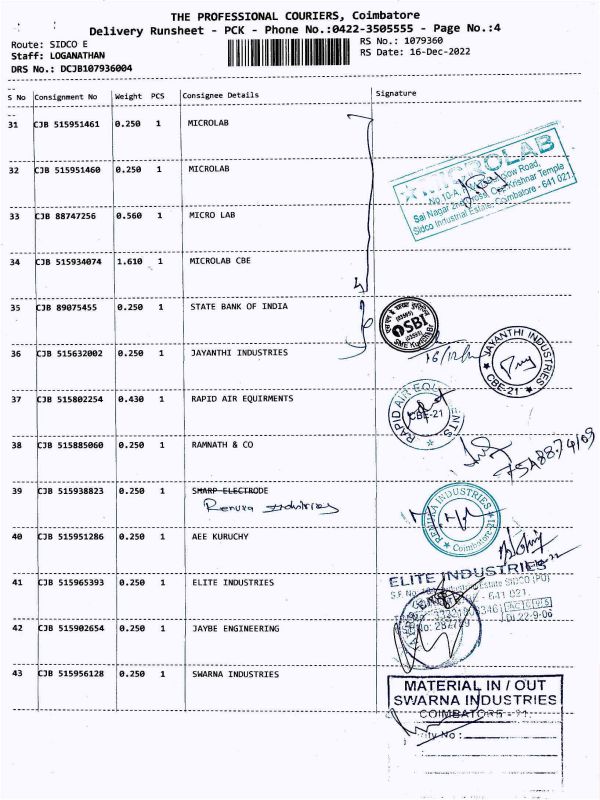 THE PROFESSIONAL COURIERS, Coimbatore
Delivery Runsheet - PCK - Phone No.:0422-3505555 - Page No.:4
Route: SIDCO E
RS No.: 1079360
Staff: LOGANATHAN
RS Date: 16-Dec-2022
DRS No.: DCJB107936004
S No Consignment No Weight PCS Consignee Details Signature
31 CJB 515951461 0.250 1 MICROLAB
32 CJB 515951460 0.250 1 MICROLAB
MICROLAB
Sai Nagar
Krishnar Temple
Sidco Industrial Estate, Coimbatore - 641 021
33 CJB 88747256 0.560 1 MICRO LAB
34 CJB 515934074 1.610 1 MICROLAB CBE
35 CJB 89075455 0.250 1 STATE BANK OF INDIA
SBI
36 CJB 515632002 0.250 1 JAYANTHI INDUSTRIES
JAYANTHI INDUSTRIES
CBE-21
37 CJB 515802254 0.430 1 RAPID AIR EQUIRMENTS
CBE-21
38 CJB 515885060 0.250 1 RAMNATH & CO
39 CJB 515938823 0.250 1 SHARP ELECTRODE
Renuxa Industries
INDUSTRIES
Coimbatore-21
40 CJB 515951286 0.250 1 AEE KURUCHY
41 CJB 515965393 0.250 1 ELITE INDUSTRIES
ELITE INDUSTRIES
42 CJB 515902654 0.250 1 JAYBE ENGINEERING
43 CJB 515956128 0.250 1 SWARNA INDUSTRIES
MATERIAL IN / OUT
SWARNA INDUSTRIES
COIMBATORE - 21.